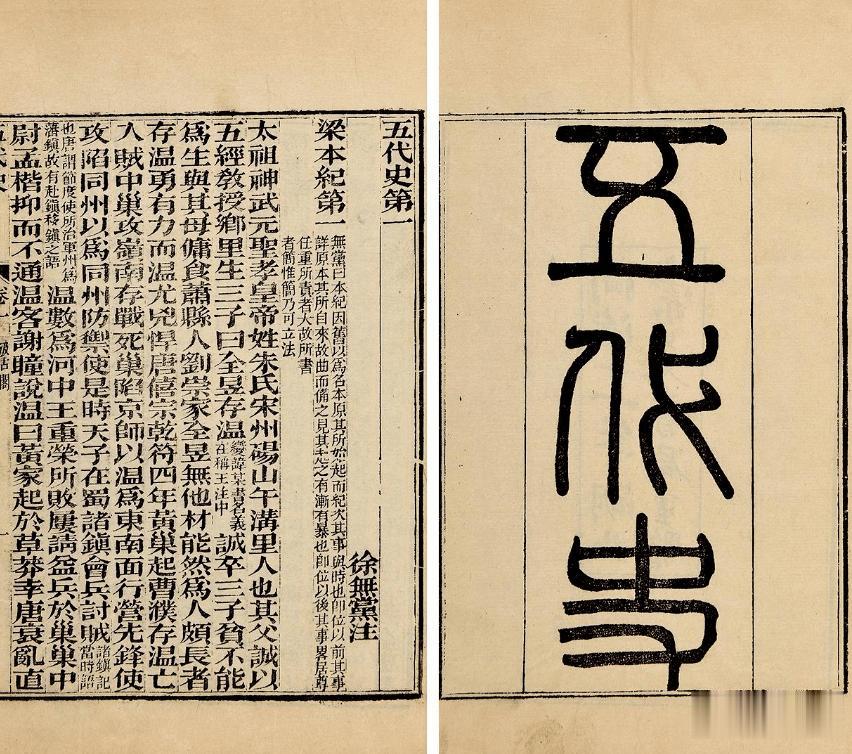 五代史
五代史第一
徐無黨注
梁本紀第一
無黨曰本紀因舊以爲名本原其所始起而紀次其事與時也即位以前其事
詳原本其所自來故曲而備之見其起之有漸有暴也即位以後其事畧居尊
任重所責者大故所書
者簡惟簡乃可立法
太祖神武元聖孝皇帝姓朱氏宋州碭山午溝里人也其父誠以
五經教授鄉里生三子曰全昱存溫變諱某書名義在稱王注中誠卒三子貧不能
爲生與其母傭食蕭縣人劉崇家全昱無他材能然爲人頗長者
存溫勇有力而溫尤兇悍唐僖宗乾符四年黃巢起曹濮存溫亡
入賊中巢攻嶺南存戰死巢陷京師以溫爲東南面行營先鋒使
攻陷同州以爲同州防禦使是時天子在蜀諸鎮會兵討賊諸鎮記當時語
也唐謂節度使所治軍州爲藩鎮故有赴鎮移鎮之語溫數爲河中王重榮所敗屢請益兵於巢巢中
尉孟楷抑而不通溫客謝瞳說溫曰黃家起於草莽幸唐衰亂直